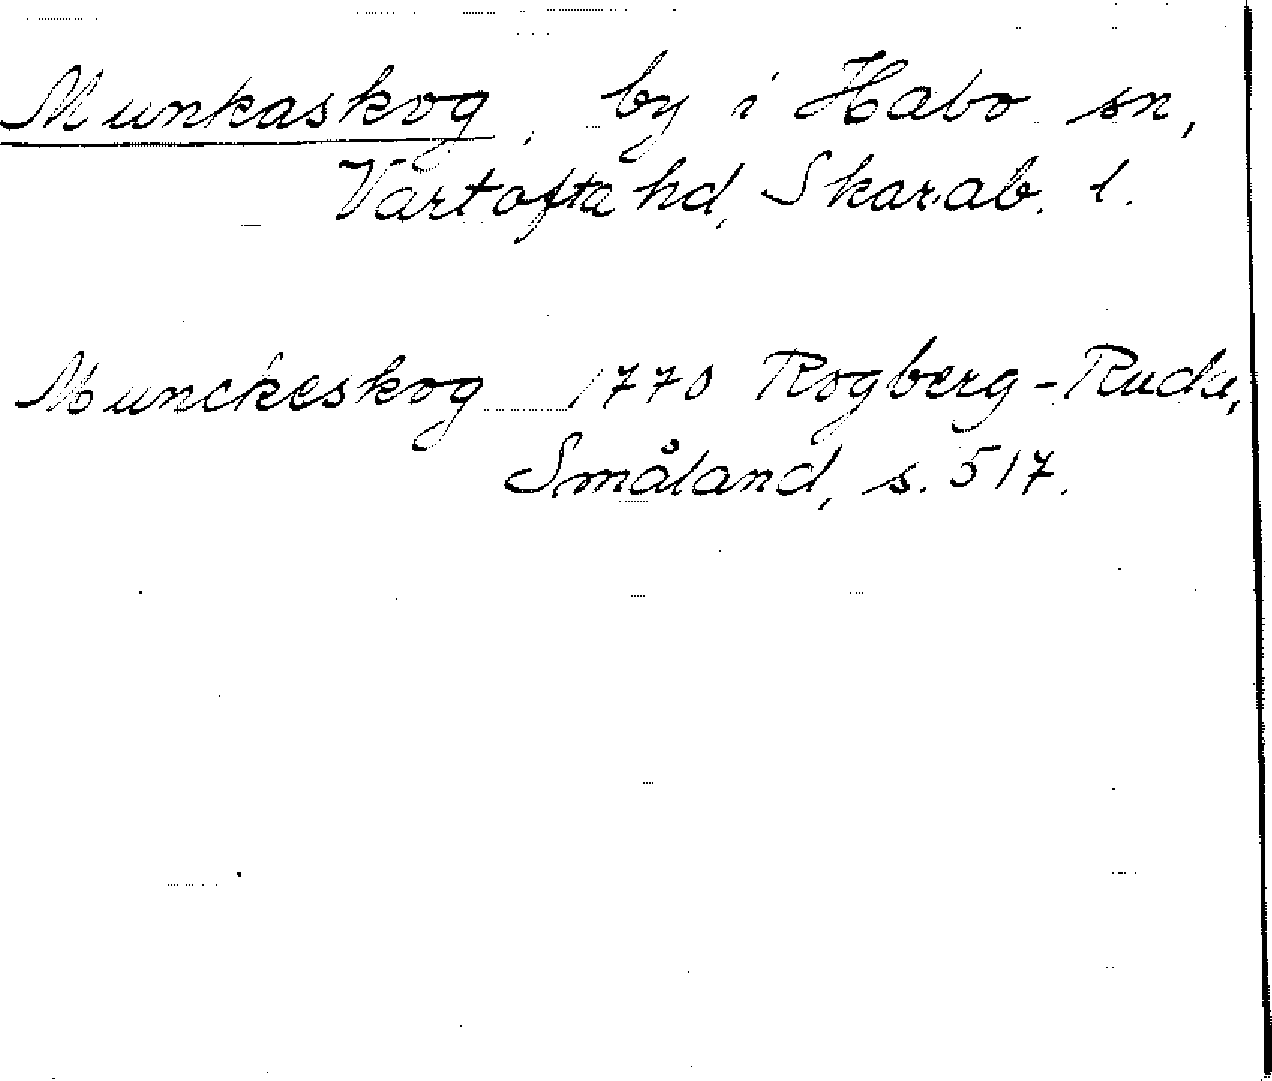 Munkaskog, by i Habo sn,
Vartofta hd, Skarab. l.
Munckeskog 1770 Rogberg-Ruda,
Småland, s. 517.